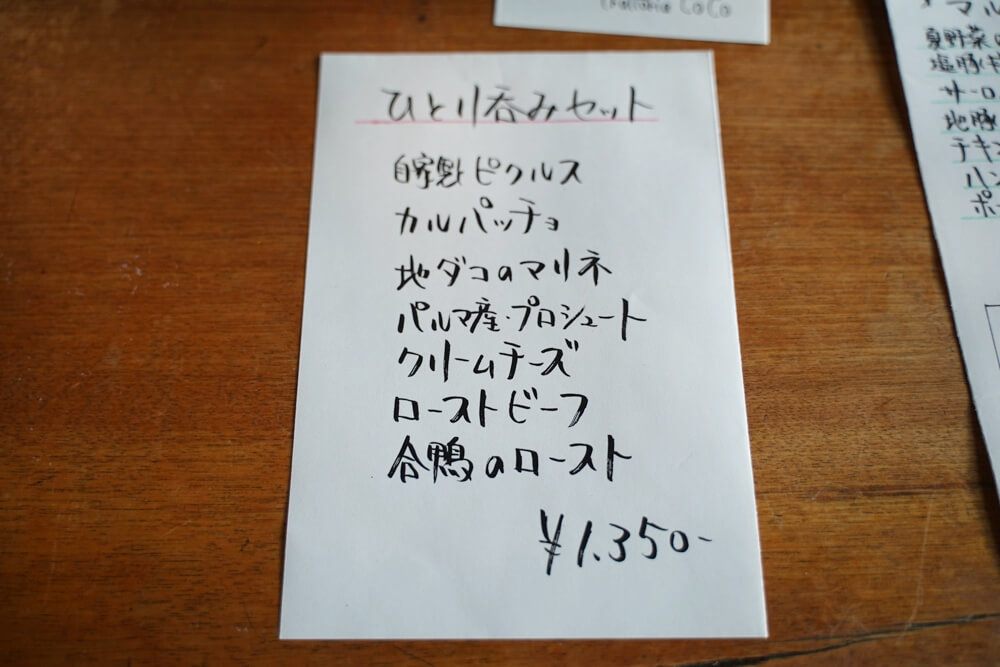 trattoria CoCo
ひとり呑みセット
自家製ピクルス
カルパッチョ
地ダコのマリネ
パルマ産・プロシュート
クリームチーズ
ローストビーフ
合鴨のロースト
¥1.350-
マル
夏野菜の
塩豚
サーロ
地豚
チキン
ハン
ポ